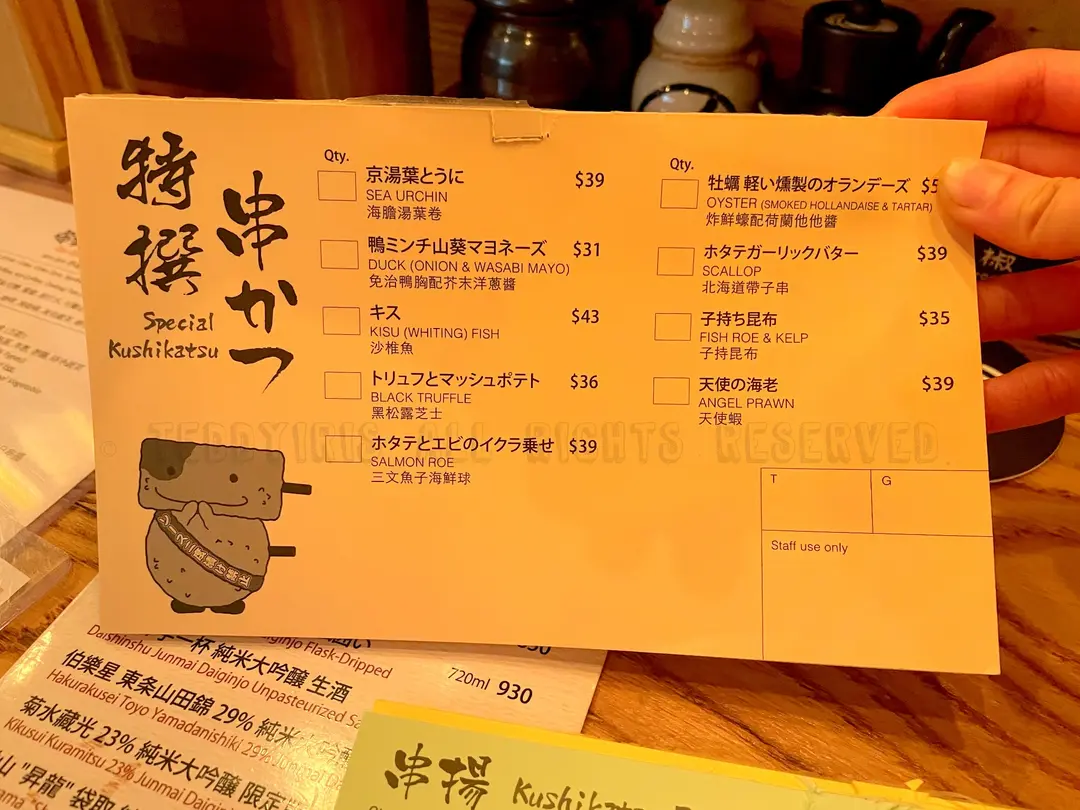 特撰
串かつ
Special
Kushikatsu
Qty.
京湯葉とうに $39
SEA URCHIN
海膽湯葉卷
鴨ミンチ山葵マヨネーズ $31
DUCK (ONION & WASABI MAYO)
免治鴨胸配芥末洋蔥醬
キス $43
KISU (WHITING) FISH
沙椎魚
トリュフとマッシュポテト $36
BLACK TRUFFLE
黑松露芝士
ホタテとエビのイクラ乗せ $39
SALMON ROE
三文魚子海鮮球
Qty.
牡蠣 軽い燻製のオランデーズ
OYSTER (SMOKED HOLLANDAISE & TARTAR)
炸鮮蠔配荷蘭他他醬
ホタテガーリックバター $39
SCALLOP
北海道帶子串
子持ち昆布 $35
FISH ROE & KELP
子持昆布
天使の海老 $39
ANGEL PRAWN
天使蝦
© TEDDYIRIS ALL RIGHTS RESERVED
T G
Staff use only
ソース二度漬け禁止
椒
Daiginjo Flask-Dripped
一杯 純米大吟醸 生酒
Daishinshu Junmai Daiginjo Unpasteurized
720ml 930
伯樂星 東条山田錦 29% 純米
Hakurakusei Toyo Yamadanishiki 29%
菊水藏光 23% 純米大吟醸 限定
Kikusui Kuramitsu 23% Junmai Daiginjo
山 "昇龍" 袋取
串揚 Kushikatsu